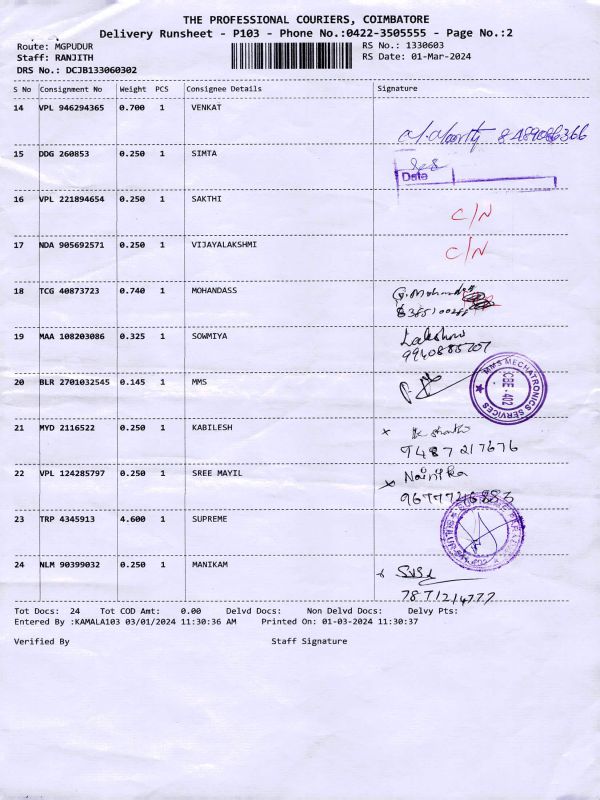 THE PROFESSIONAL COURIERS, COIMBATORE
Delivery Runsheet - P103 - Phone No.:0422-3505555 - Page No.:2
Route: MGPUDUR RS No.: 1330603
Staff: RANJITH RS Date: 01-Mar-2024
DRS No.: DCJB133060302
S No Consignment No Weight PCS Consignee Details Signature
14 VPL 946294365 0.700 1 VENKAT
8489086366
15 DDG 260853 0.250 1 SIMTA
Date
16 VPL 221894654 0.250 1 SAKTHI C/N
17 NDA 905692571 0.250 1 VIJAYALAKSHMI C/N
18 TCG 40873723 0.740 1 MOHANDASS
19 MAA 108203086 0.325 1 SOWMIYA
20 BLR 2701032545 0.145 1 MMS MMS MECHATRONICS SERVICES CBE - 402
21 MYD 2116522 0.250 1 KABILESH
9487217676
22 VPL 124285797 0.250 1 SREE MAYIL
23 TRP 4345913 4.600 1 SUPREME
24 NLM 90399032 0.250 1 MANIKAM
7871214777
Tot Docs: 24 Tot COD Amt: 0.00 Delvd Docs: Non Delvd Docs: Delvy Pts:
Entered By :KAMALA103 03/01/2024 11:30:36 AM Printed On: 01-03-2024 11:30:37
Verified By Staff Signature